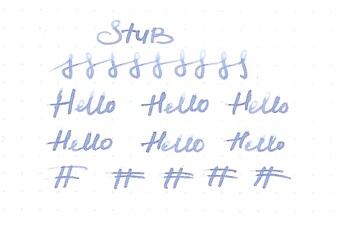 Stub
Hello Hello Hello
Hello Hello Hello
# # # # #